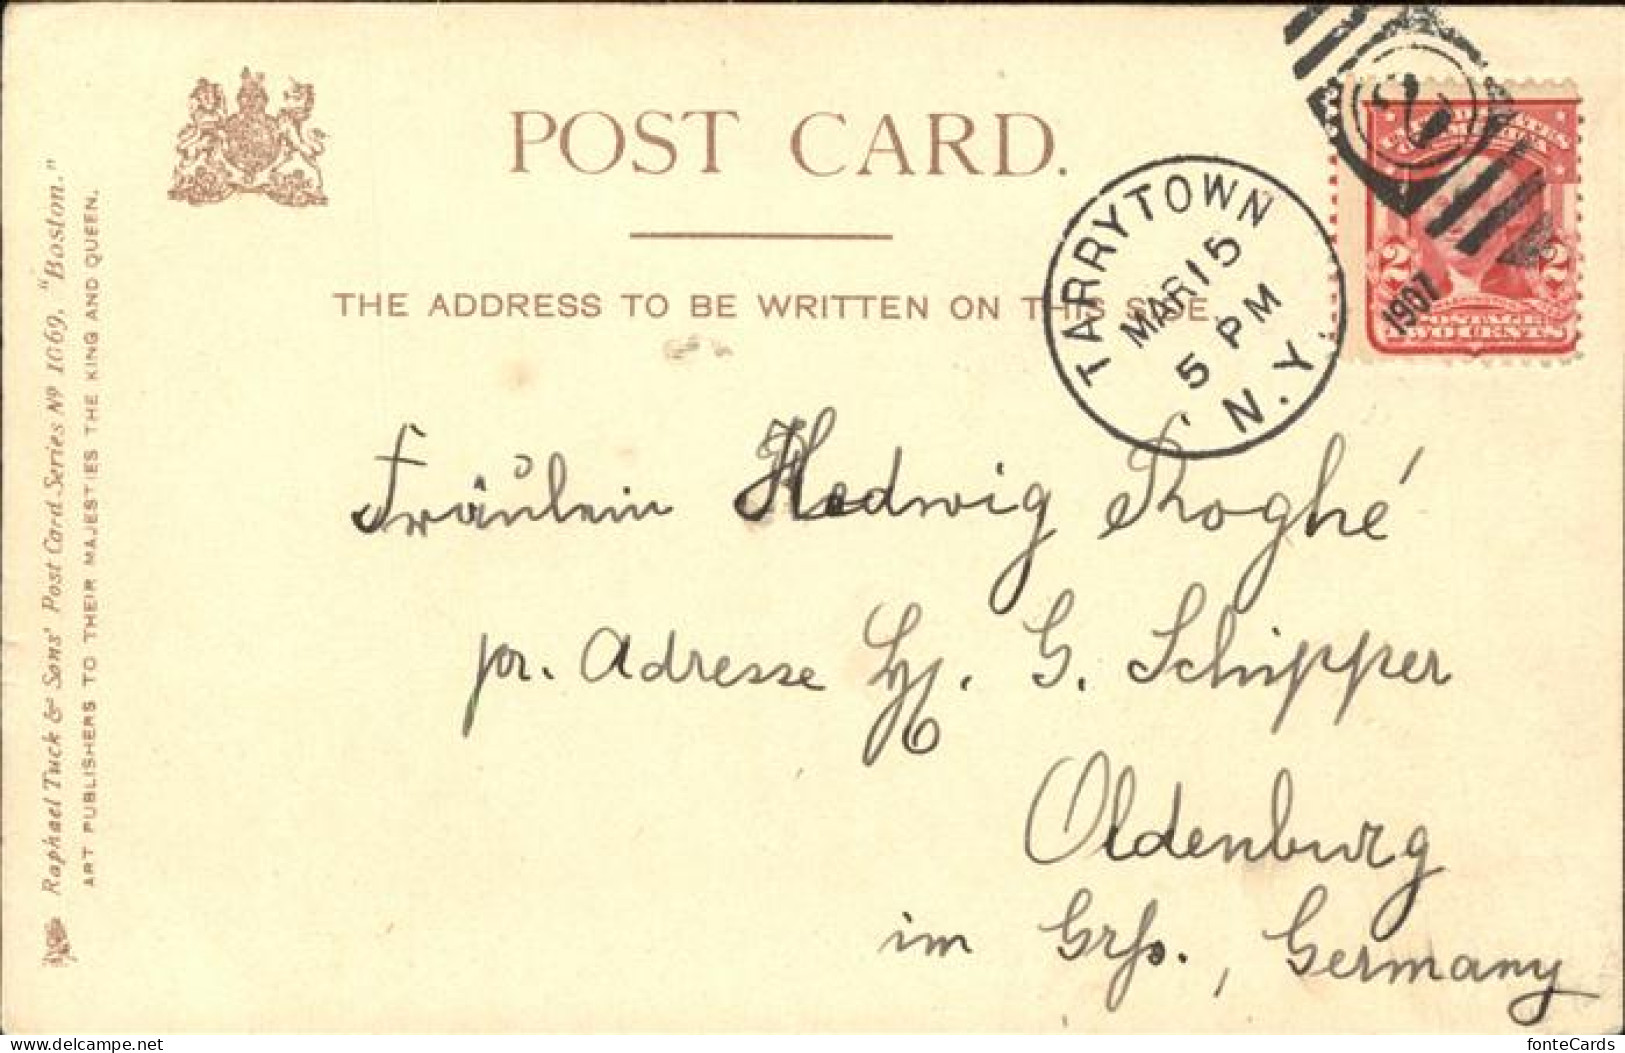 POST CARD.
THE ADDRESS TO BE WRITTEN ON THIS SIDE.
TARRYTOWN
MAR 15
5 PM
N.Y.
1907
2
2 2
POSTAGE
TWO CENTS
Fräulein Hedwig Roghé
pr. Adresse G. Schipper
Oldenburg
im Grhs., Germany
Raphael Tuck & Sons' Post Card Series Nº 1069. "Boston."
ART PUBLISHERS TO THEIR MAJESTIES THE KING AND QUEEN.
delcampe.net
fonteCards